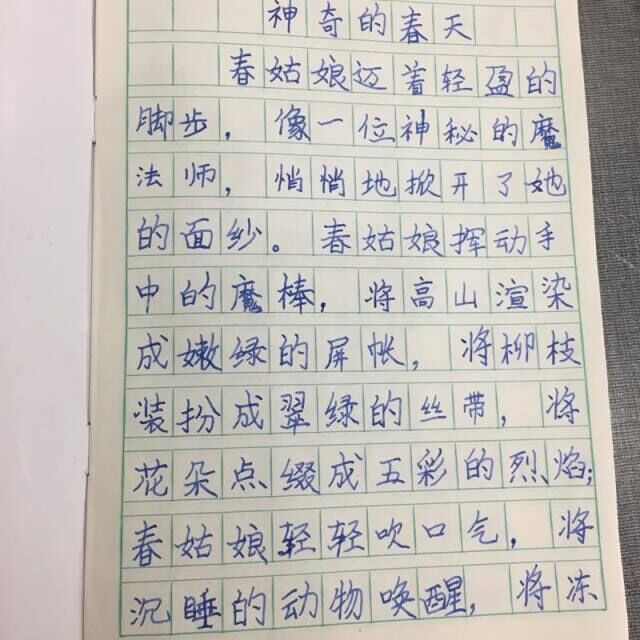 神奇的春天
春姑娘迈着轻盈的
脚步，像一位神秘的魔
法师，悄悄地掀开了她
的面纱。春姑娘挥动手
中的魔棒，将高山渲染
成嫩绿的屏帐，将柳枝
装扮成翠绿的丝带，将
花朵点缀成五彩的烈焰；
春姑娘轻轻吹口气，将
沉睡的动物唤醒，将冻